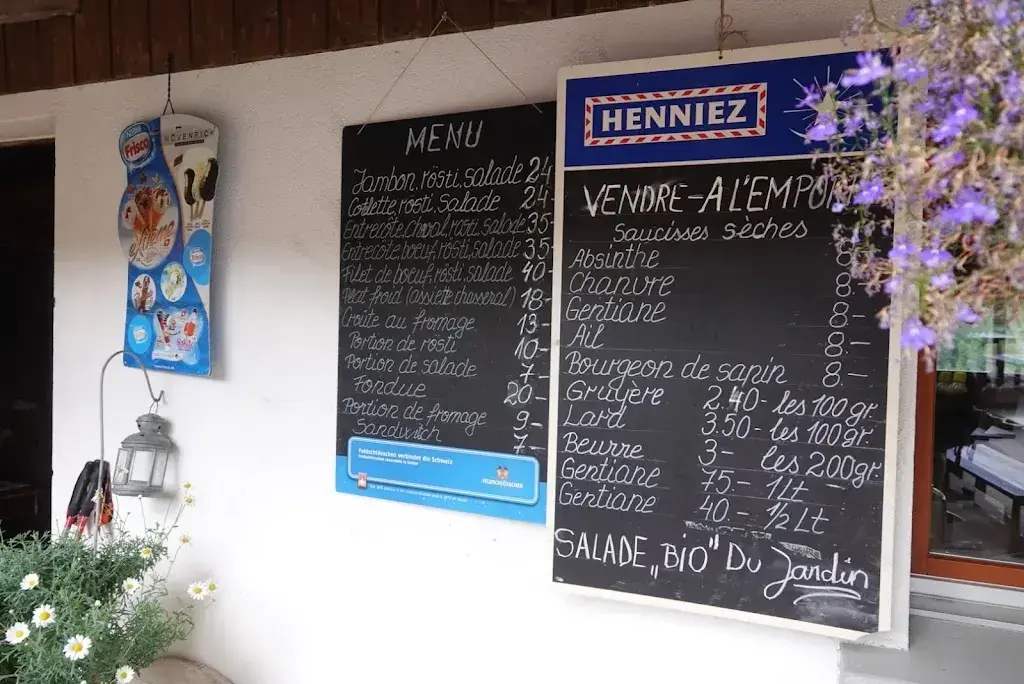 Nestlé
Frisco
MÖVENPICK
MENU
Jambon, rösti, salade 24
Cotlette, rosti, salade 24-
Entrecote cheval, rosti, salade 35-
Entrecote boeuf, rösti, salade 35-
Filet de boeuf, rösti, salade 40-
Plat froid (assiete chasseral) 18-
Croute au fromage 13-
Portion de rosti 10-
Portion de salade 7-
Fondue 20-
Portion de fromage 9-
Sandwitch 7-
Feldschlösschen verbindet die Schweiz
FELDSCHLÖSSCHEN
HENNIEZ
VENDRE-A L'EMPOR
Saucisses sèches
Absinthe 8
Chanvre 8.-
Gentiane 8.-
Ail 8.-
Bourgeon de sapin 8.-
Gruyère 2.40- les 100gr.
Lard 3.50- les 100gr.
Beurre 3- les 200gr.
Gentiane 75.- 1Lt
Gentiane 40.- 1/2 Lt
SALADE „BIO" DU Jardin